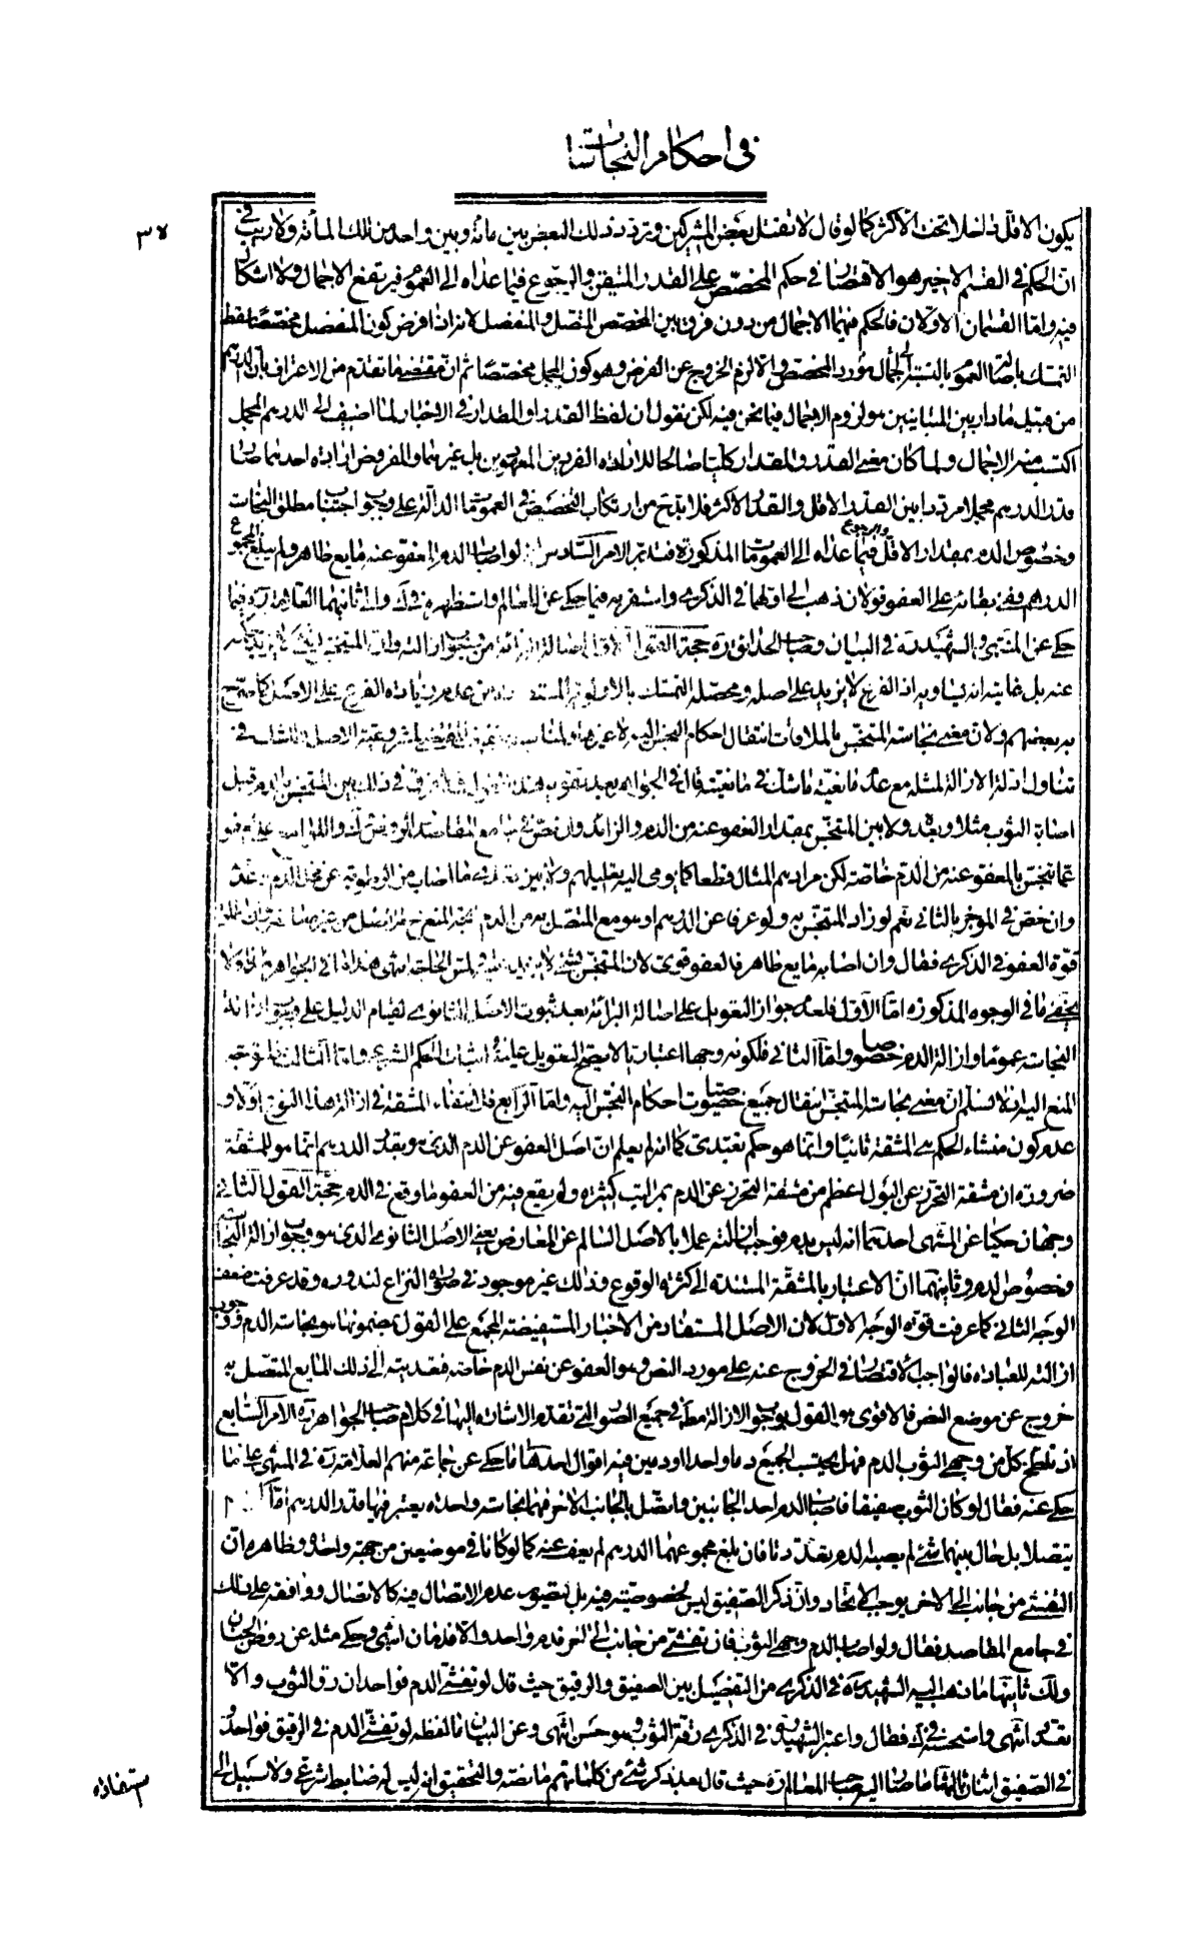 في احكام النجاسات
يكون الاقل داخلا تحت الاكثر كما لو قال لا تقتل بعض المشركين وتردد ذلك البعض بين مائة وبين واحد من تلك المائة ولا ريب في
ان الحكم في القسم الاخير هو الاقتصار في حكم المخصص على القدر المتيقن والرجوع فيما عداه الى العموم فيرتفع الاجمال ولا اشكال
فيه واما القسمان الاولان فالحكم فيهما الاجمال من دون فرق بين المخصص المتصل والمنفصل لانه اذا فرض كون المنفصل مخصصا سقط
التمسك باصالة العموم بالنسبة الى اجمال مورد المخصص والا لزم الخروج عن الفرض وهو كون المجمل مخصصا ثم ان مقتضى ما تقدم من الاعتراف بان الدرهم
من قبيل ما دار بين المتباينين هو لزوم الاجمال فيما نحن فيه لكن نقول ان لفظ القدر او المقدار في الاخبار لما اضيف الى الدرهم المجمل
اكتسب منه الاجمال ولما كان معنى القدر والمقدار كليا صالحا لارادة الفردين المعهودين بل غيرهما والمفروض ارادة احدهما صار
قدر الدرهم مجملا مرددا بين القدر الاقل والقدر الاكثر فلا بد من ارتكاب التخصيص في العمومات الدالة على وجوب اجتناب مطلق النجاسات
وخصوص الدم بمقدار الاقل والرجوع فيما عداه الى العمومات المذكورة فتدبر الامر السادس لو اصاب الدم المعفو عنه مايع طاهر ولم يبلغ المجموع
الدرهم ففي بقائه على العفو قولان ذهب الى اولهما في الذكرى واستقر به فيما حكى عن المعالم واستظهره في ك والى ثانيهما العلامة ره فيما
حكى عن المنتهى والشهيد ره في البيان وصاحب الحدائق ره حجة القول الاول اصالة البرائة من وجوب ازالته وان المتنجس بشيء لا يزيد حكمه
عنه بل غايته انه يساويه اذ الفرع لا يزيد على اصله ومحصله التمسك بالاولوية من عدم زيادة الفرع على الاصل كما صرح
به بعضهم ولان معنى نجاسة المتنجس بالملاقات انتقال احكام النجس اليه لا غيرها
تناول ادلة الازالة لمثله مع عدم مانعية ما شك في مانعيته قال في الجواهر بعد تقويه لا فرق في ذلك بين المتنجس بالدم قبل
اصابة الثوب مثلا وبعده ولا بين المتنجس بمقدار العفو عنه من الدم والزائد وان نص في جامع المقاصد والروض ك واللوامع على العفو
عما تنجس بالمعفو عنه من الدم خاصة لكن مرادهم المثال قطعا كما يومى اليه تعليلهم ولا بين تعدى ما اصاب من الرطوبة عن محل الدم وعدمه
وان خص في الموجز بالثاني نعم لو زاد المتنجس به ولو عرفا عن الدرهم او هو مع المتصل به من الدم
قوة العفو في الذكرى فقال وان اصابه مايع طاهر فالعفو قوى لان المتنجس بشيء لا يزيد عليه انتهى هذا ما في الجواهر ولا
يخفى ما في الوجوه المذكورة اما الاول فلعدم جواز التعويل على اصالة البرائة بعد ثبوت الاصل الثانوى لقيام الدليل على وجوب ازالة
النجاسة عموما وازالة الدم خصوصا واما الثاني فلكونه وجها اعتباريا لا يصح التعويل عليه في اثبات الحكم الشرعي واما الثالث فلتوجه
المنع اليه اذ لا نسلم ان معنى نجاسة المتنجس انتقال جميع خصوصيات احكام النجس اليه واما الرابع فلانتفاء المشقة في ازالة هذا النوع اولا و
عدم كون منشاء الحكم هي المشقة ثانيا وانما هو حكم تعبدى كما انه لم يعلم ان اصل العفو عن الدم الذى هو بقدر الدرهم انما هو للمشقة
ضرورة ان مشقة التحرز عن البول اعظم من مشقة التحرز عن الدم بمراتب كثيرة ولم يقع فيه من العفو ما وقع في الدم حجة القول الثاني
وجهان حكيا عن المنتهى احدهما انه ليس بدم فوجب ازالته عملا بالاصل السالم عن المعارض يعنى الاصل الثانوى الذى هو وجوب ازالة النجاسات
وخصوص الدم وثانيهما ان الاعتبار بالمشقة المستندة الى كثرة الوقوع وذلك غير موجود في صورة النزاع لندوره وقد عرفت ضعف
الوجه الثاني كما عرفت قوة الوجه الاول لان الاصل المستفاد من الاخبار المستفيضة المجمع على القول بمضمونها هو نجاسة الدم ووجوب
ازالته للعبادة فالواجب الاقتصار في الخروج عنه على مورد النص وهو العفو عن نفس الدم خاصة فتعديته الى ذلك المايع المتصل به
خروج عن موضع النص فالاقوى هو القول بوجوب الازالة مطلقا في جميع الصور التى تقدم الاشارة اليها في كلام صاحب الجواهر ره الامر السابع
ان تلطخ كل من وجهى الثوب الدم فهل يحتسب الجميع دما واحدا او دمين فيه اقوال احدها ما حكى عن جماعة منهم العلامة ره في المنتهى على ما
حكى عنه فقال لو كان الثوب صفيقا فاصاب الدم احد الجانبين واتصل بالجانب الاخر فهما نجاسة واحدة يعتبر فيها قدر الدرهم اما لو لم
يتصلا بل حال بينهما شئ لم يصبه لدم تعددتا فان بلغ مجموعهما الدرهم لم يعف عنه كما لو كانا في موضعين من جهة واحدة وظاهره ان
التفشى من جانب الى الاخر يوجب الاتحاد وان ذكر الصفيق ليس لخصوصية فيه بل لتصوير عدم الاتصال فيه كالاتصال ووافقه على ذلك
في جامع المقاصد فقال ولو اصاب الدم وجهى الثوب فان تفشى من جانب الى اخر فدم واحد والا فدمان انتهى وحكى مثله عن روض الجنان
ولك ثانيها ما ذهب اليه الشهيد ره في الذكرى من التفصيل بين الصفيق والرقيق حيث قال لو تفشى الدم فواحد ان رق الثوب والا
تعدد انتهى واستحسنه في ك فقال واعتبر الشهيد ره في الذكرى رقة الثوب وهو حسن انتهى وعن البيان ما لفظه لو تفشى الدم في الرقيق فواحد و
في الصفيق اثنان ثالثها ما صار اليه صاحب المعالم ره حيث قال بعد ذكر شئ من كلماتهم ما نصه والتحقيق انه ليس له ضابط شرعي ولا سبيل الى
استفادة